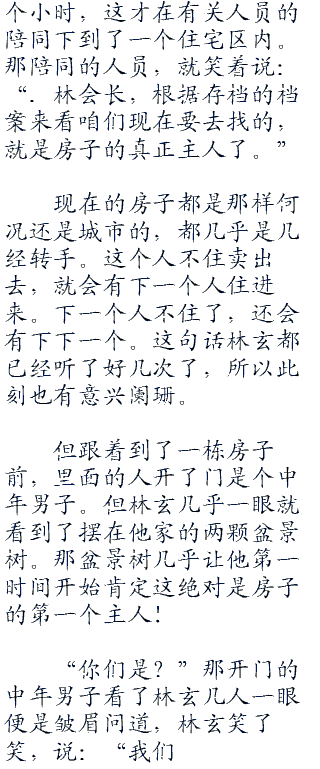 个小时，这才在有关人员的
陪同下到了一个住宅区内。
那陪同的人员，就笑着说：
“．林会长，根据存档的档
案来看咱们现在要去找的，
就是房子的真正主人了。”
现在的房子都是那样何
况还是城市的，都几乎是几
经转手。这个人不住卖出
去，就会有下一个人住进
来。下一个人不住了，还会
有下下一个。这句话林玄都
已经听了好几次了，所以此
刻也有意兴阑珊。
但跟着到了一栋房子
前，里面的人开了门是个中
年男子。但林玄几乎一眼就
看到了摆在他家的两颗盆景
树。那盆景树几乎让他第一
时间开始肯定这绝对是房子
的第一个主人！
“你们是？”那开门的
中年男子看了林玄几人一眼
便是皱眉问道，林玄笑了
笑，说：“我们